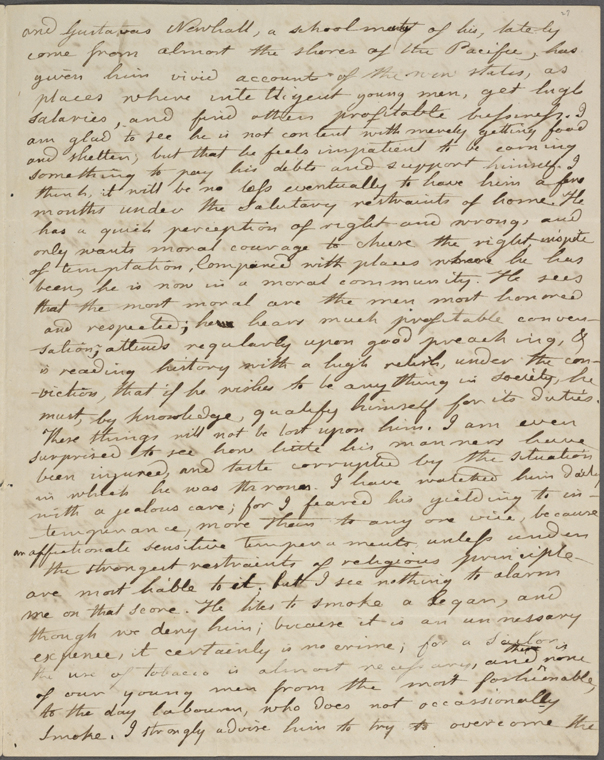 and Gustavus Newhall, a school mate of his, lately
come from almost the shores of the Pacific, has
given him vivid account of the new states, as
places where intelligent young men, get high
salaries, and find others profitable bussiness. I
am glad to see he is not content with merely getting food
and shelter, but that he feels impatient to be earning
something to pay his debts and support himself. I
think, it will be no less eventually to have him a few
months under the salutary restraints of home. He
has a quick perception of right and wrong, and
only wants moral courage to chuse the right inspite
of temptation. Compared with places where he has
been, he is now in a moral community. He sees
that the most moral are the men most honored
and respected; he hears much profitable conver-
sation; attends regularly upon good preaching, &
is reading history with a high relish, under the con-
viction, that if he wishes to be any thing in society, he
must, by knowledge, qualify himself for its duties.
These things will not be lost upon him. I am even
surprised to see how little his manners have
been injured, and taste corrupted by the situation
in which he was thrown. I have watched him daily
with a jealous care; for I feared his yielding to in-
temperance, more than to any one vice, because
an affectionate sensitive temperaments, unless under
the strongest restraints of religious principle
are most liable to it but I see nothing to alarm
me on that score. He likes to smoke a Segar, and
though we deny him; because it is an unnessary
expence, it certainly is no crime; for a Sailor
the use of tobacco is almost necessary, and there is none
of our young men from the most fashionable,
to the day labourer, who does not occassionally
smoke. I strongly advise him to try to overcome the